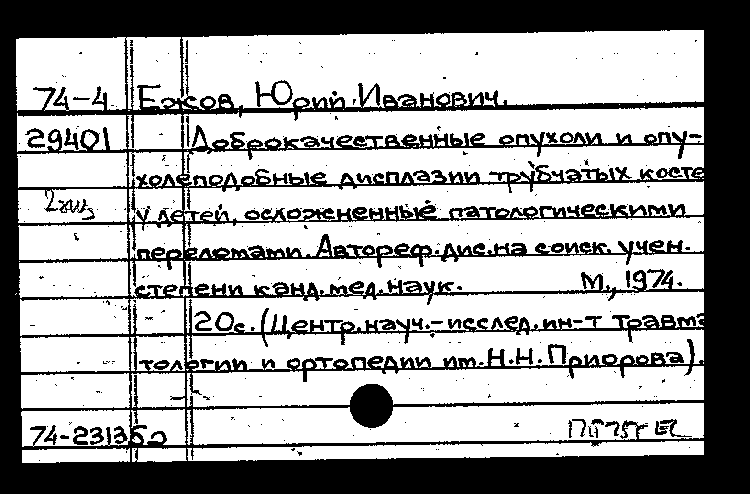 74-4 Ежов, Юрий Иванович.
29401 Доброкачественные опухоли и опу-
холеподобные дисплазии трубчатых косте
2 экз у детей, осложненные патологическими
переломами. Автореф. дис. на соиск. учен.
степени канд. мед. наук. М., 1974.
20с. (Центр. науч.-исслед. ин-т травма
тологии и ортопедии им. Н.Н. Приорова).
74-23135